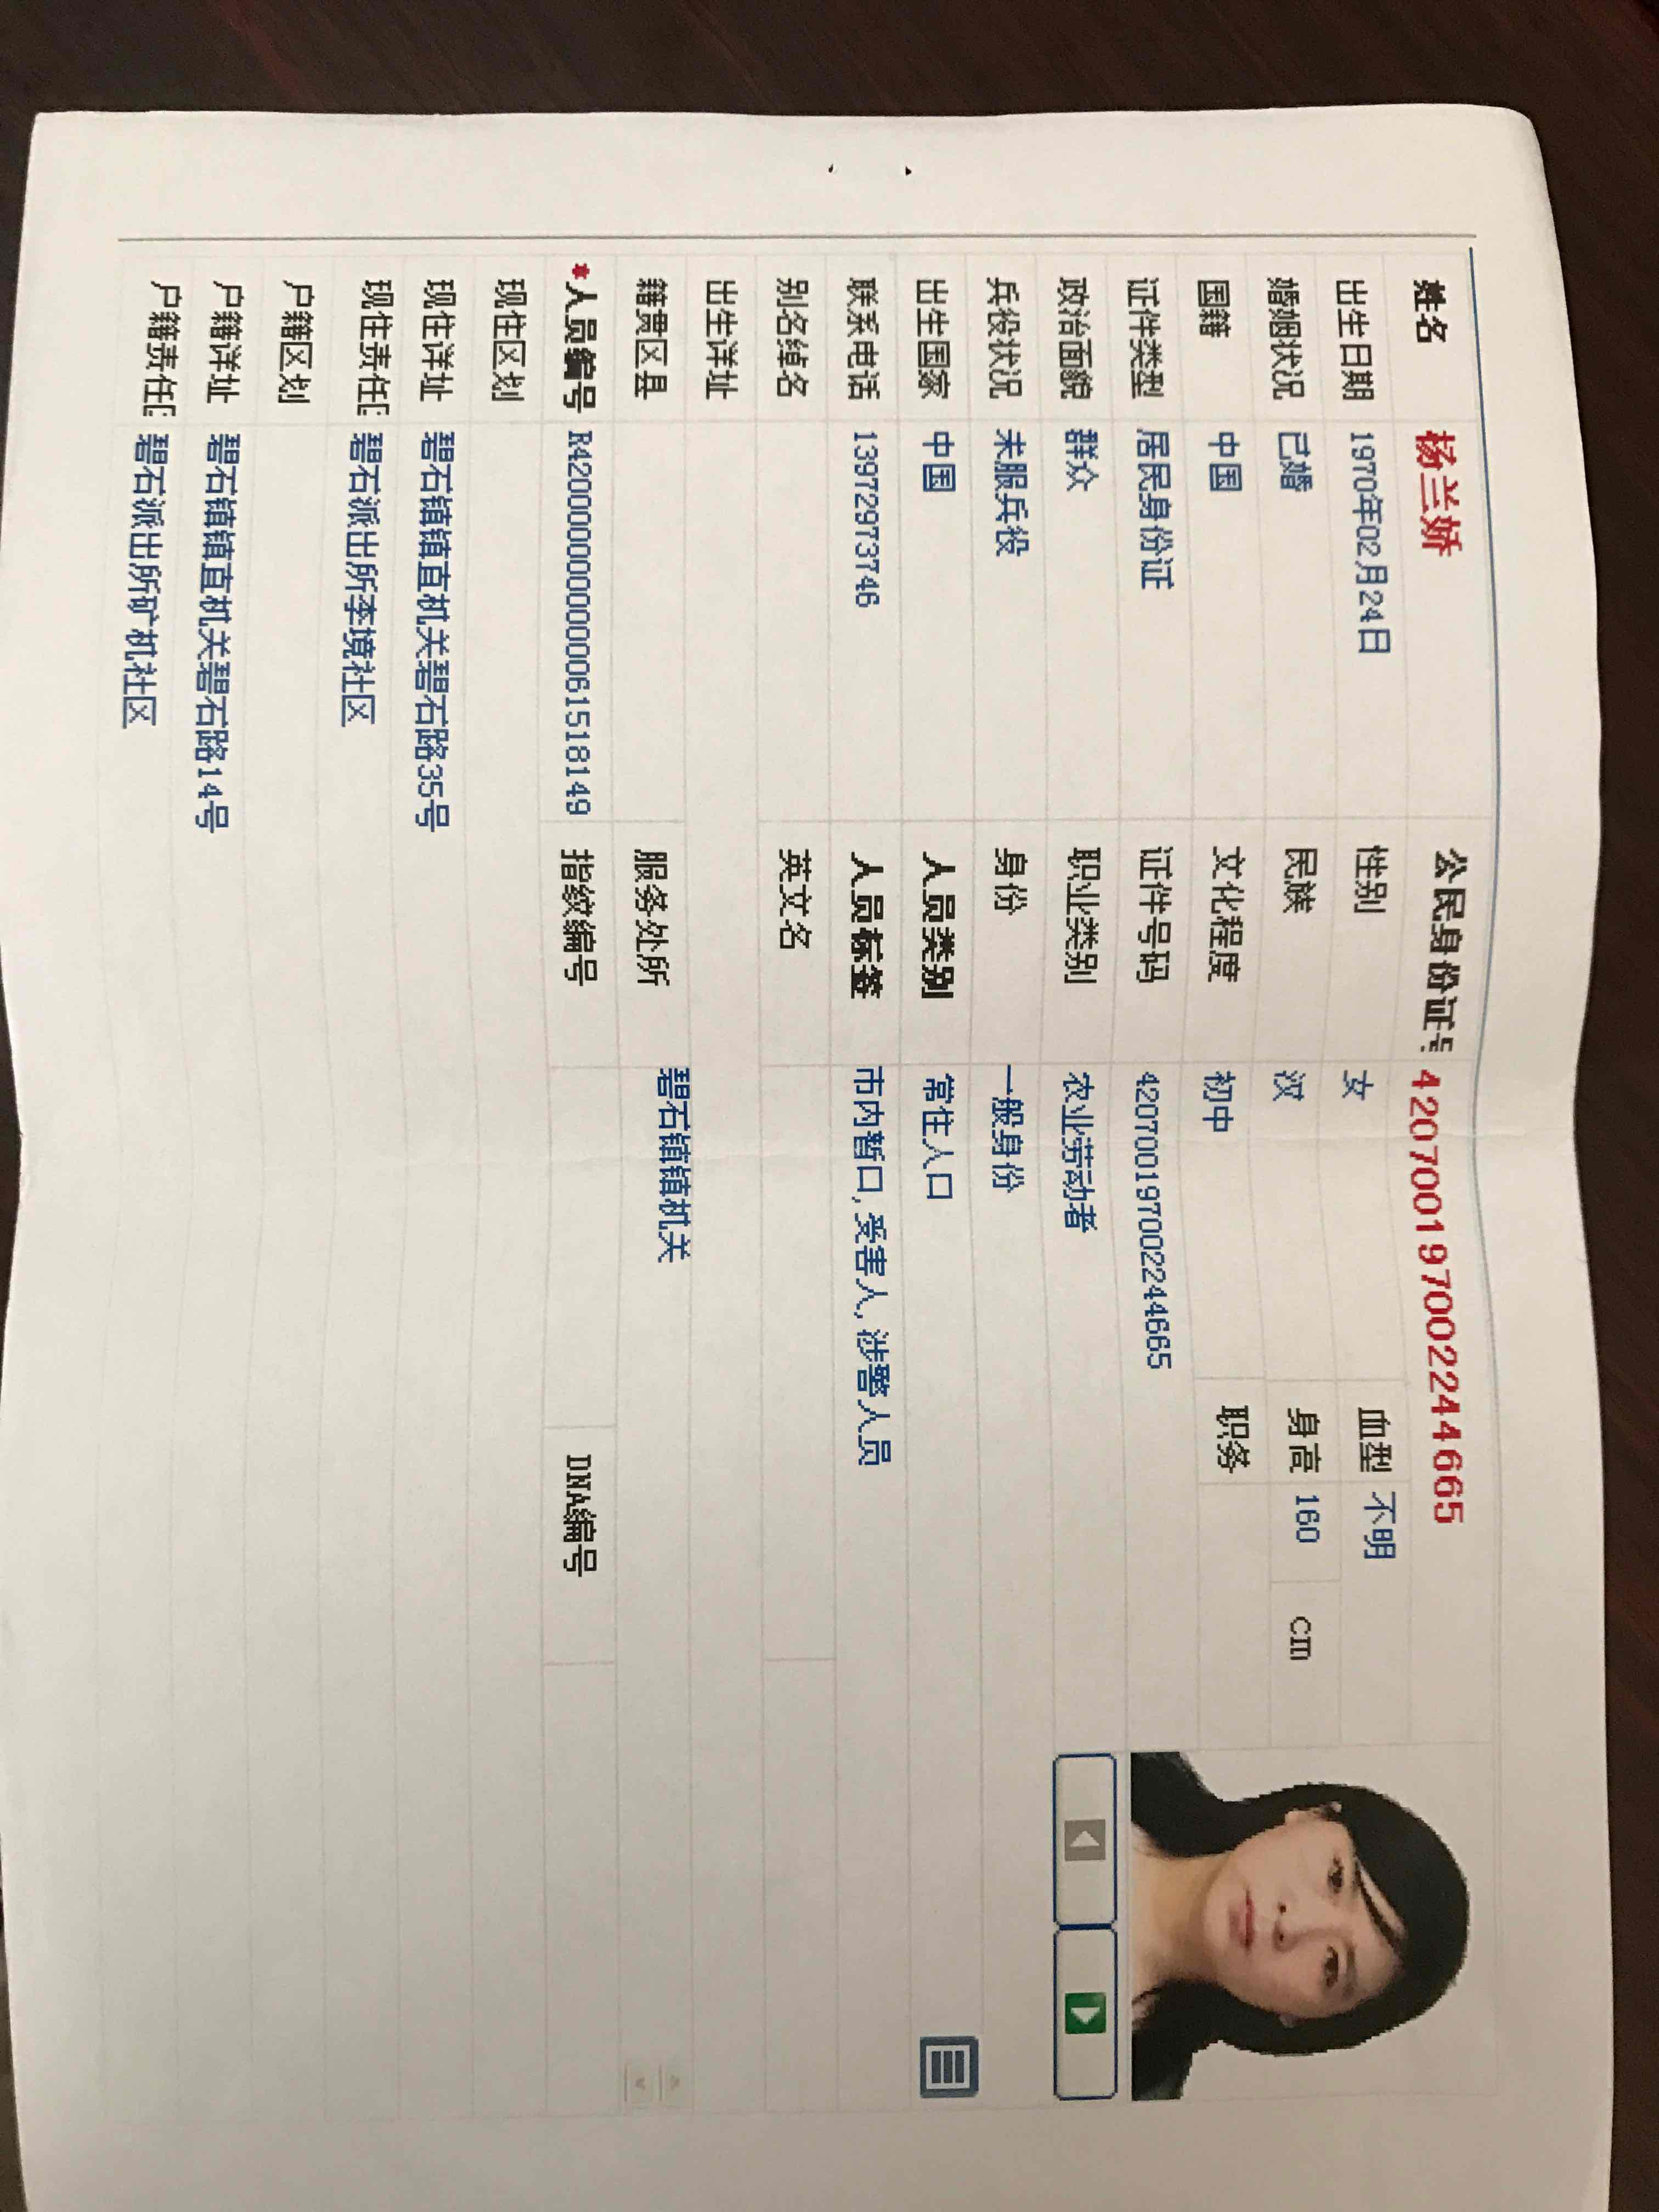 姓名 杨兰娇 公民身份证号 420700197002244665
出生日期 1970年02月24日 性别 女 血型 不明
婚姻状况 已婚 民族 汉 身高 160 cm
国籍 中国 文化程度 初中 职务
证件类型 居民身份证 证件号码 420700197002244665
政治面貌 群众 职业类别 农业劳动者
兵役状况 未服兵役 身份 一般身份
出生国家 中国 人员类别 常住人口
联系电话 13972973746 人员标签 市内暂口, 受害人, 涉警人员
别名绰名 英文名
出生详址
籍贯区县 服务处所 碧石镇镇机关
*人员编号 R4200000000000061518149 指纹编号 DNA编号
现住区划
现住详址 碧石镇镇直机关碧石路35号
现住责任区 碧石派出所李境社区
户籍区划
户籍详址 碧石镇镇直机关碧石路14号
户籍责任区 碧石派出所矿机社区